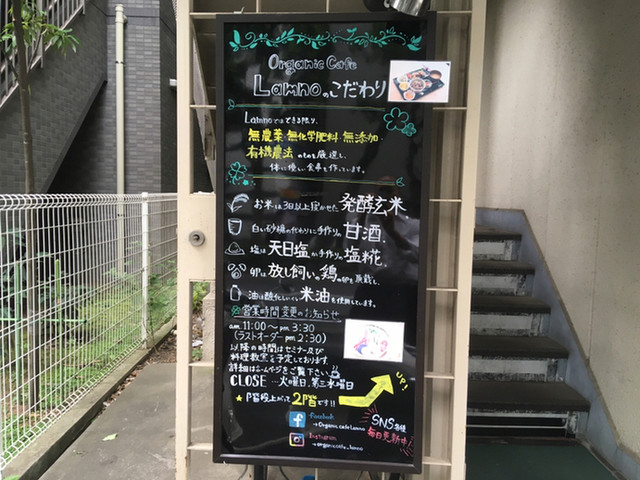 Organic Cafe
Lamnoのこだわり
Lamnoではできる限り、
無農薬・無化学肥料・無添加・
有機農法のものを厳選し、
体に優しい食事を作っています。
お米は3日以上寝かせた発酵玄米、
白い砂糖の代わりに手作りの甘酒、
塩は天日塩か手作りの塩糀、
卵は放し飼いの鶏の卵を厳選し、
油は酸化しにくい米油を使用しています。
営業時間変更のお知らせ
am 11:00〜pm 3:30
(ラストオーダー pm 2:30)
以降の時間はセミナー及び
料理教室を予定しております。
詳細はホームページをご覧下さい
CLOSE …火曜日、第三水曜日
UP!
★階段上がって2階です!!
Facebook
→Organic cafe Lamno
SNS各種
毎日更新中!
Instagram
→organiccafe_lamno